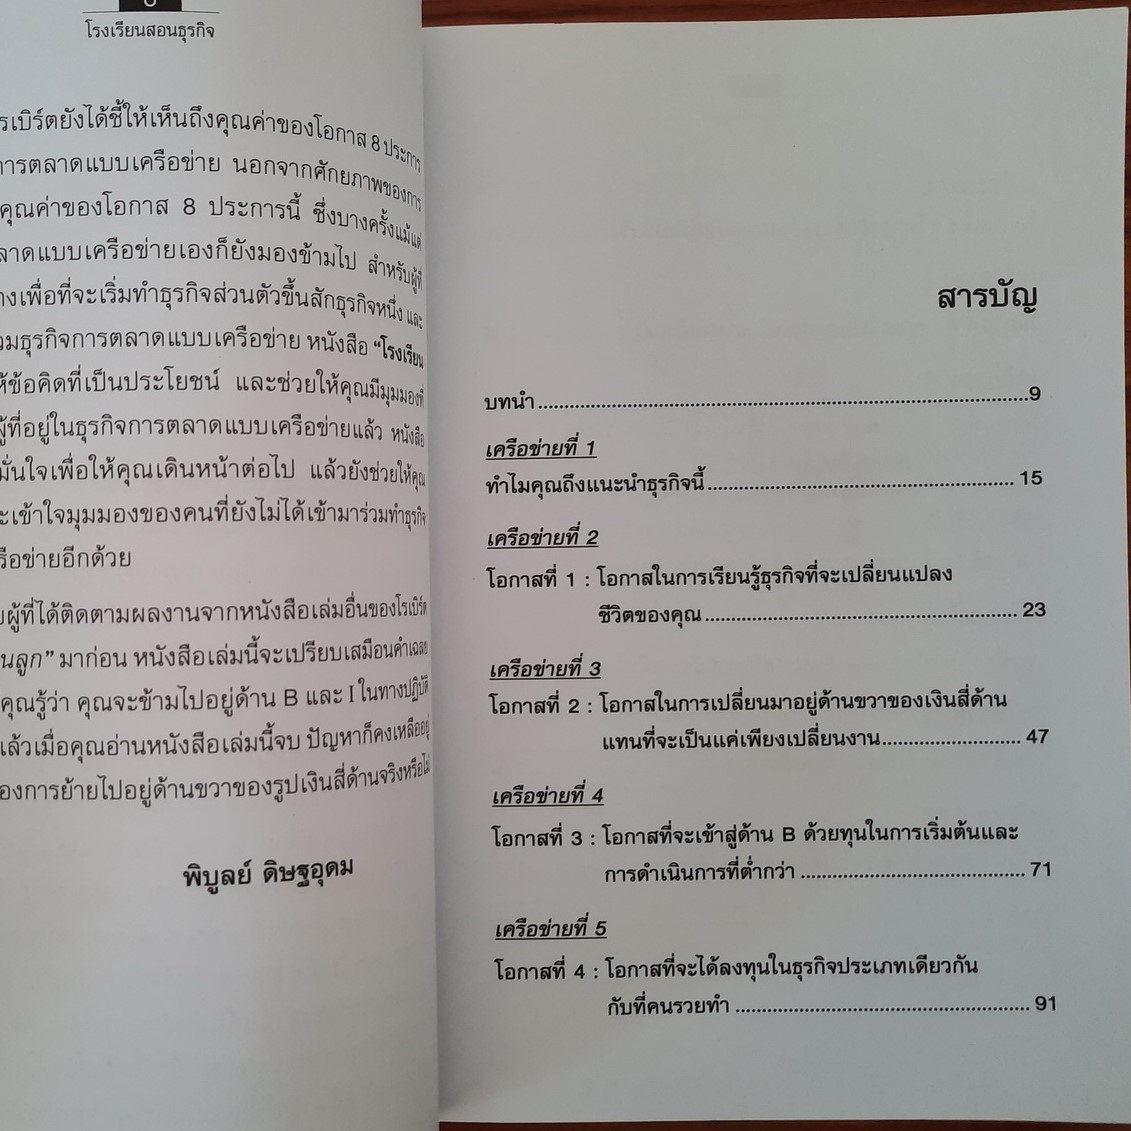 โรงเรียนสอนธุรกิจ
รเบิร์ตยังได้ชี้ให้เห็นถึงคุณค่าของโอกาส 8 ประการ
การตลาดแบบเครือข่าย นอกจากศักยภาพของการ
คุณค่าของโอกาส 8 ประการนี้ ซึ่งบางครั้งแม้แต่
ลาดแบบเครือข่ายเองก็ยังมองข้ามไป สำหรับผู้ที่
างเพื่อที่จะเริ่มทำธุรกิจส่วนตัวขึ้นสักธุรกิจหนึ่ง และ
วมธุรกิจการตลาดแบบเครือข่าย หนังสือ “โรงเรียน
ห้ข้อคิดที่เป็นประโยชน์ และช่วยให้คุณมีมุมมองที่
ผู้ที่อยู่ในธุรกิจการตลาดแบบเครือข่ายแล้ว หนังสือ
มั่นใจเพื่อให้คุณเดินหน้าต่อไป แล้วยังช่วยให้คุณ
ะเข้าใจมุมมองของคนที่ยังไม่ได้เข้ามาร่วมทำธุรกิจ
รือข่ายอีกด้วย
บผู้ที่ได้ติดตามผลงานจากหนังสือเล่มอื่นของโรเบิร์ต
นลูก” มาก่อน หนังสือเล่มนี้จะเปรียบเสมือนคำเฉลย
คุณรู้ว่า คุณจะข้ามไปอยู่ด้าน B และ I ในทางปฏิบัติ
แล้วเมื่อคุณอ่านหนังสือเล่มนี้จบ ปัญหาก็คงเหลืออยู่
องการย้ายไปอยู่ด้านขวาของรูปเงินสี่ด้านจริงหรือไม่
พิบูลย์ ดิษฐอุดม
สารบัญ
บทนำ..........9
เครือข่ายที่ 1
ทำไมคุณถึงแนะนำธุรกิจนี้.......... 15
เครือข่ายที่ 2
โอกาสที่ 1 : โอกาสในการเรียนรู้ธุรกิจที่จะเปลี่ยนแปลง
ชีวิตของคุณ.......... 23
เครือข่ายที่ 3
โอกาสที่ 2 : โอกาสในการเปลี่ยนมาอยู่ด้านขวาของเงินสี่ด้าน
แทนที่จะเป็นแค่เพียงเปลี่ยนงาน.......... 47
เครือข่ายที่ 4
โอกาสที่ 3 : โอกาสที่จะเข้าสู่ด้าน B ด้วยทุนในการเริ่มต้นและ
การดำเนินการที่ต่ำกว่า .......... 71
เครือข่ายที่ 5
โอกาสที่ 4 : โอกาสที่จะได้ลงทุนในธุรกิจประเภทเดียวกัน
กับที่คนรวยทำ .......... 91